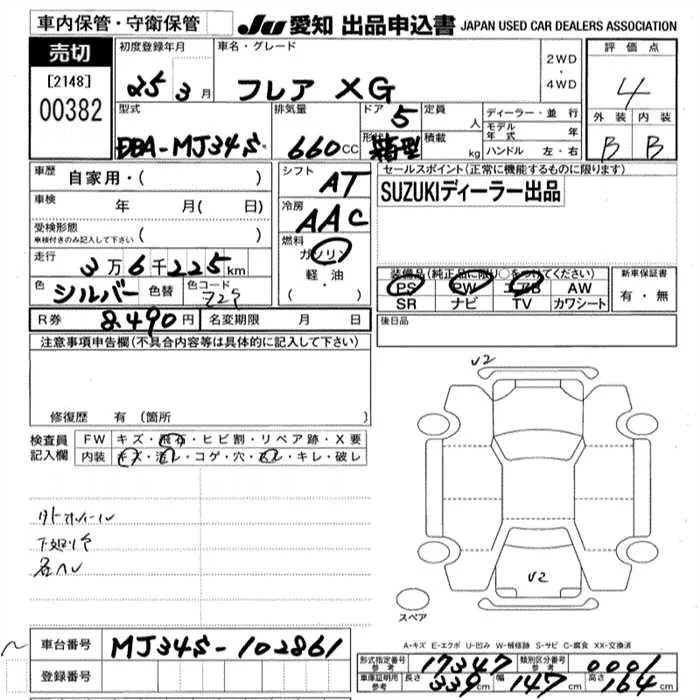 車内保管・守衛保管
JU 愛知 出品申込書 JAPAN USED CAR DEALERS ASSOCIATION
売切
[2148]
00382
初度登録年月
25 3 月
車名・グレード
フレア XG
2WD
・
4WD
評価点
4
外装 内装
B B
型式
DBA-MJ34S
排気量
660 CC
ドア 5
形状 箱型
定員 人
積載 kg
ディーラー・並行
モデル年式 年
ハンドル 左・右
車歴 自家用・( )
車検 年 月( 日)
受検形態
車検付きのみ記入して下さい ( )
走行 3万6千225km
色 シルバー 色替 色コード Z2S
シフト AT
冷房 AAC
燃料
ガソリン
軽・油
( ・ )
セールスポイント(正常に機能するものに限ります)
SUZUKIディーラー出品
装備品(純正品に限り○をつけてください)
PS PW エアB AW
SR ナビ TV カワシート
新車保証書
有・無
R券 8,490円 名変期限 月 日
後日品
注意事項申告欄(不具合内容等は具体的に記入して下さい)
修復歴 有 (箇所 )
検査員
記入欄
FW キズ・飛石・ヒビ割・リペア跡・X要
内装 キズ・汚レ・コゲ・穴・スレ・キレ・破レ
V2
V2
スペア
A-キズ E-エクボ U-凹み W-補修跡 S-サビ C-腐食 XX-交換済
車台番号 MJ34S-102861
登録番号
形式指定番号 参考 17347 類別区分番号 参考 0001
車庫証明用 参考 長さ 339cm 幅 147cm 高さ 164cm